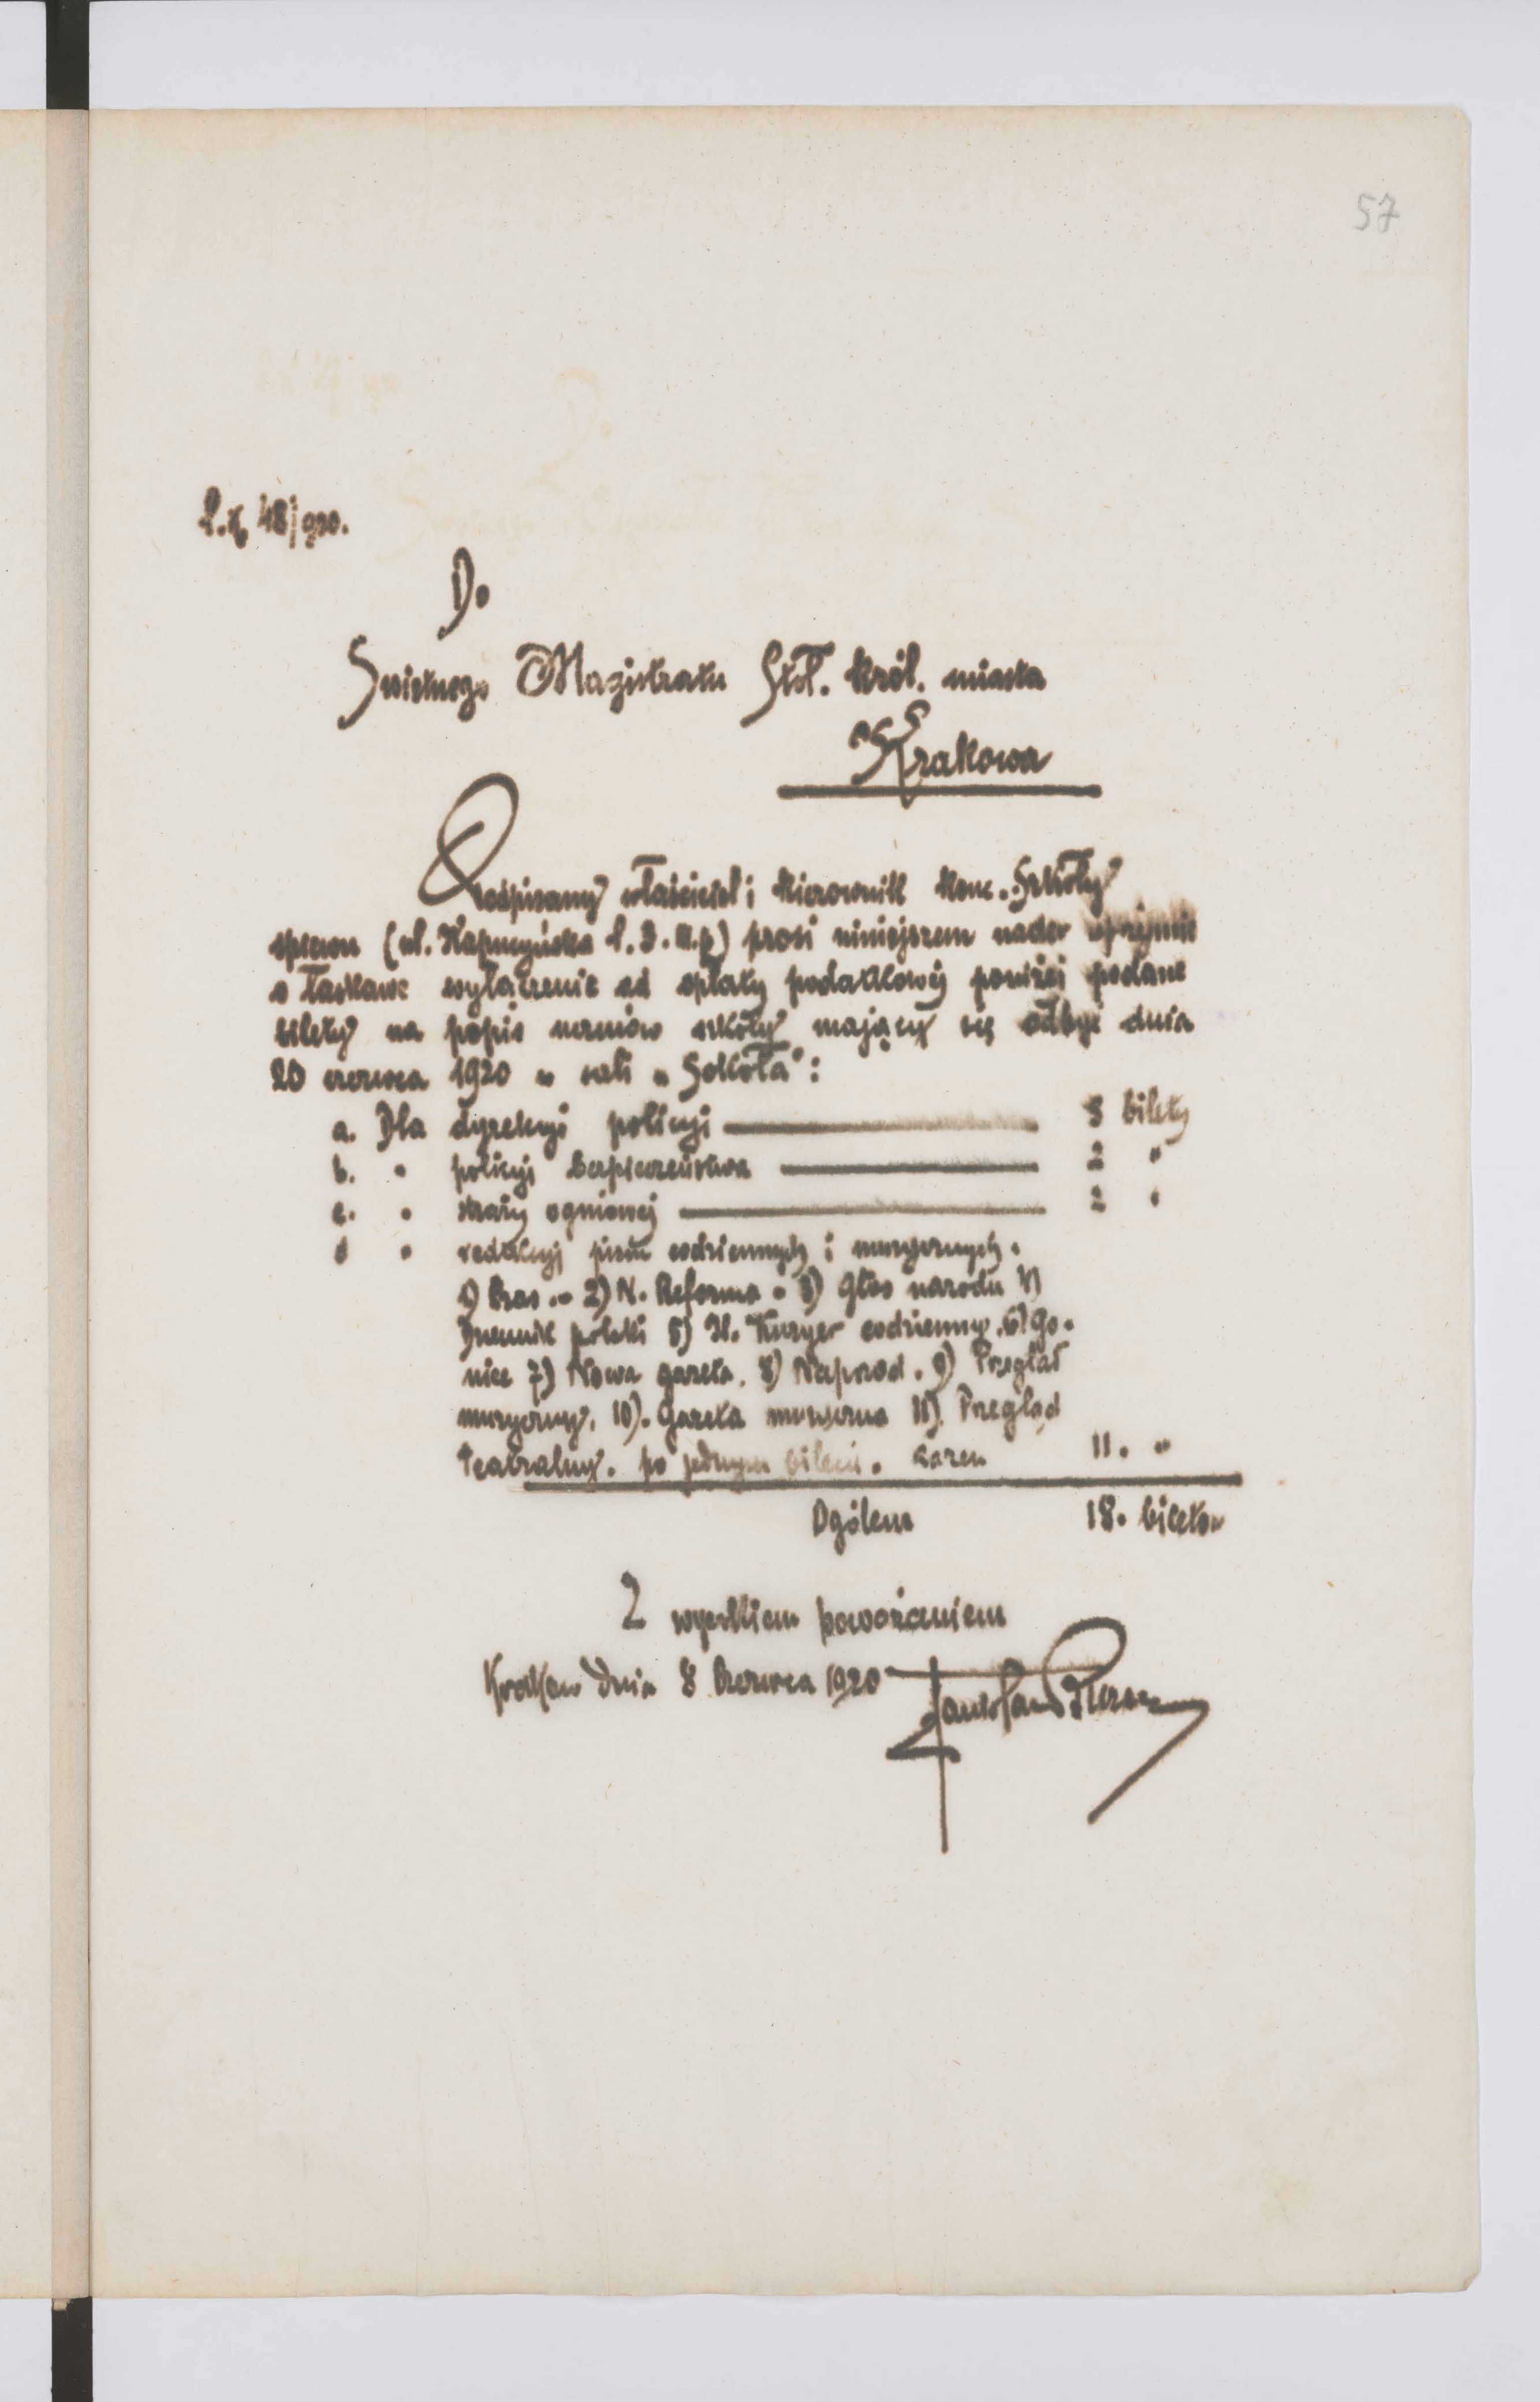 57
48/920.
Do
Świetnego Magistratu Stoł. król. miasta
Krakowa
Podpisany właściciel i kierownik konc. Szkoły
śpiewu (ul. Kapucyńska l. 3. II.p) prosi niniejszem nader uprzejmie
o łaskawe wyłączenie od opłaty podatkowej poniżej podane
bilety na popis uczniów szkoły mający się odbyć dnia
20 czerwca 1920 w sali „Sokoła":
a. Dla dyrekcyi policyi 3 bilety
b. " policyi bezpieczeństwa 2 "
c. " straży ogniowej 2 "
d " redakcyj pism codziennych i muzycznych.
1) Czas. - 2) N. Reforma - 3) Głos narodu 4)
Dziennik polski 5) Il. Kuryer codzienny. 6) Go-
niec 7) Nowa gazeta. 8) Naprzód. 9) Przegląd
muzyczny. 10). Gazeta muzyczna 11) Przegląd
Teatralny. po jednym bilecie. razem 11. "
Ogólem 18. biletów
Z wysokiem poważaniem
Kraków dnia 8 Czerwca 1920